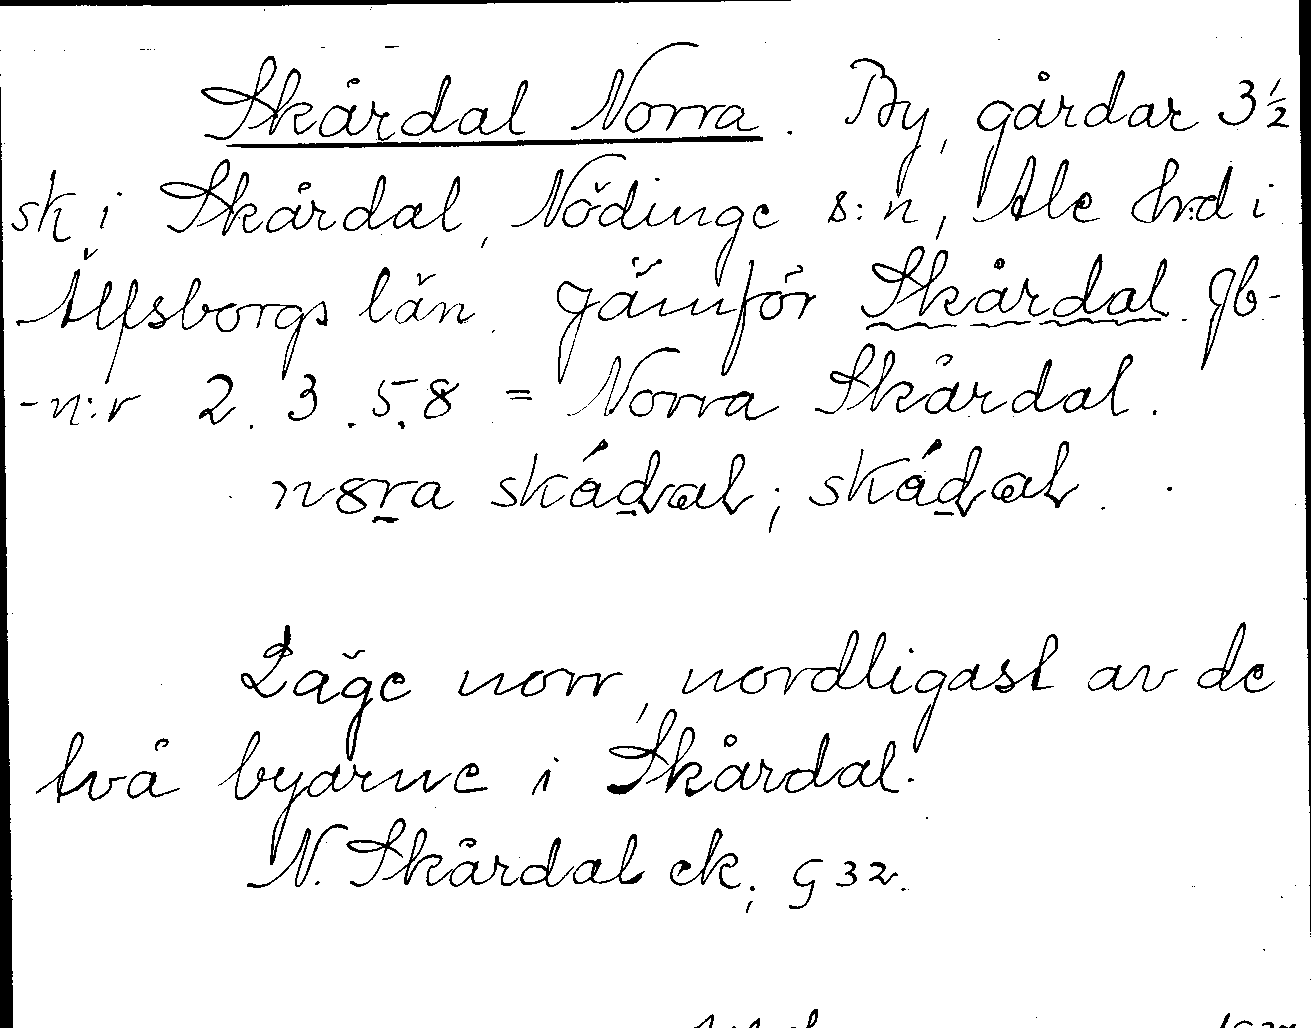 Skårdal Norra. By, gårdar 3 1/2
sk i Skårdal, Nödinge s:n, Ale h:d i
Älfsborgs län. Jämför Skårdal. Jb-
-n:r 2. 3. 5. 8 = Norra Skårdal.
skådal; skådal.
Läge norr, nordligast av de
två byarne i Skårdal.
N. Skårdal ek; G 32.